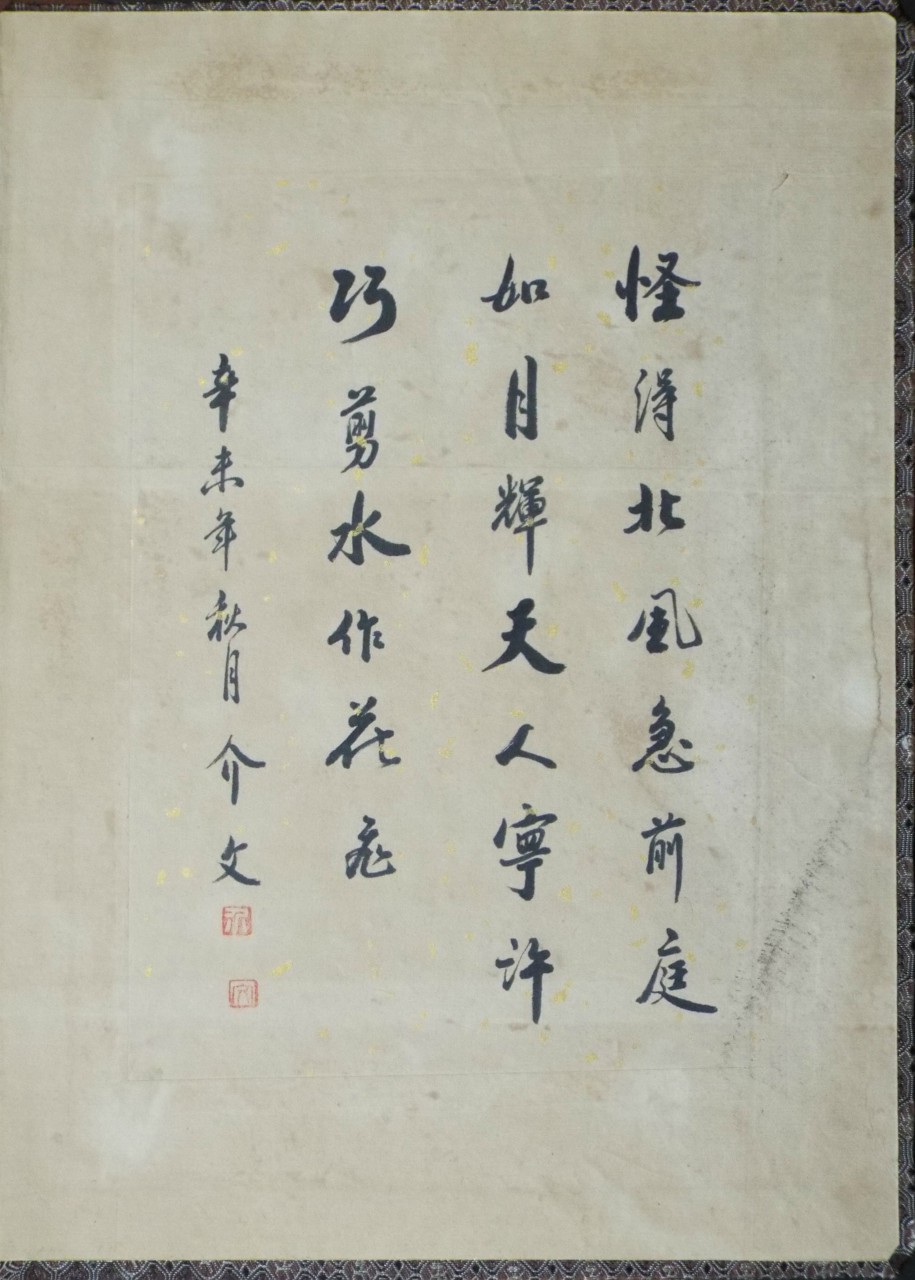 怪得北風急前庭
如月輝天人寧許
巧剪水作花飛
辛未年秋月介文